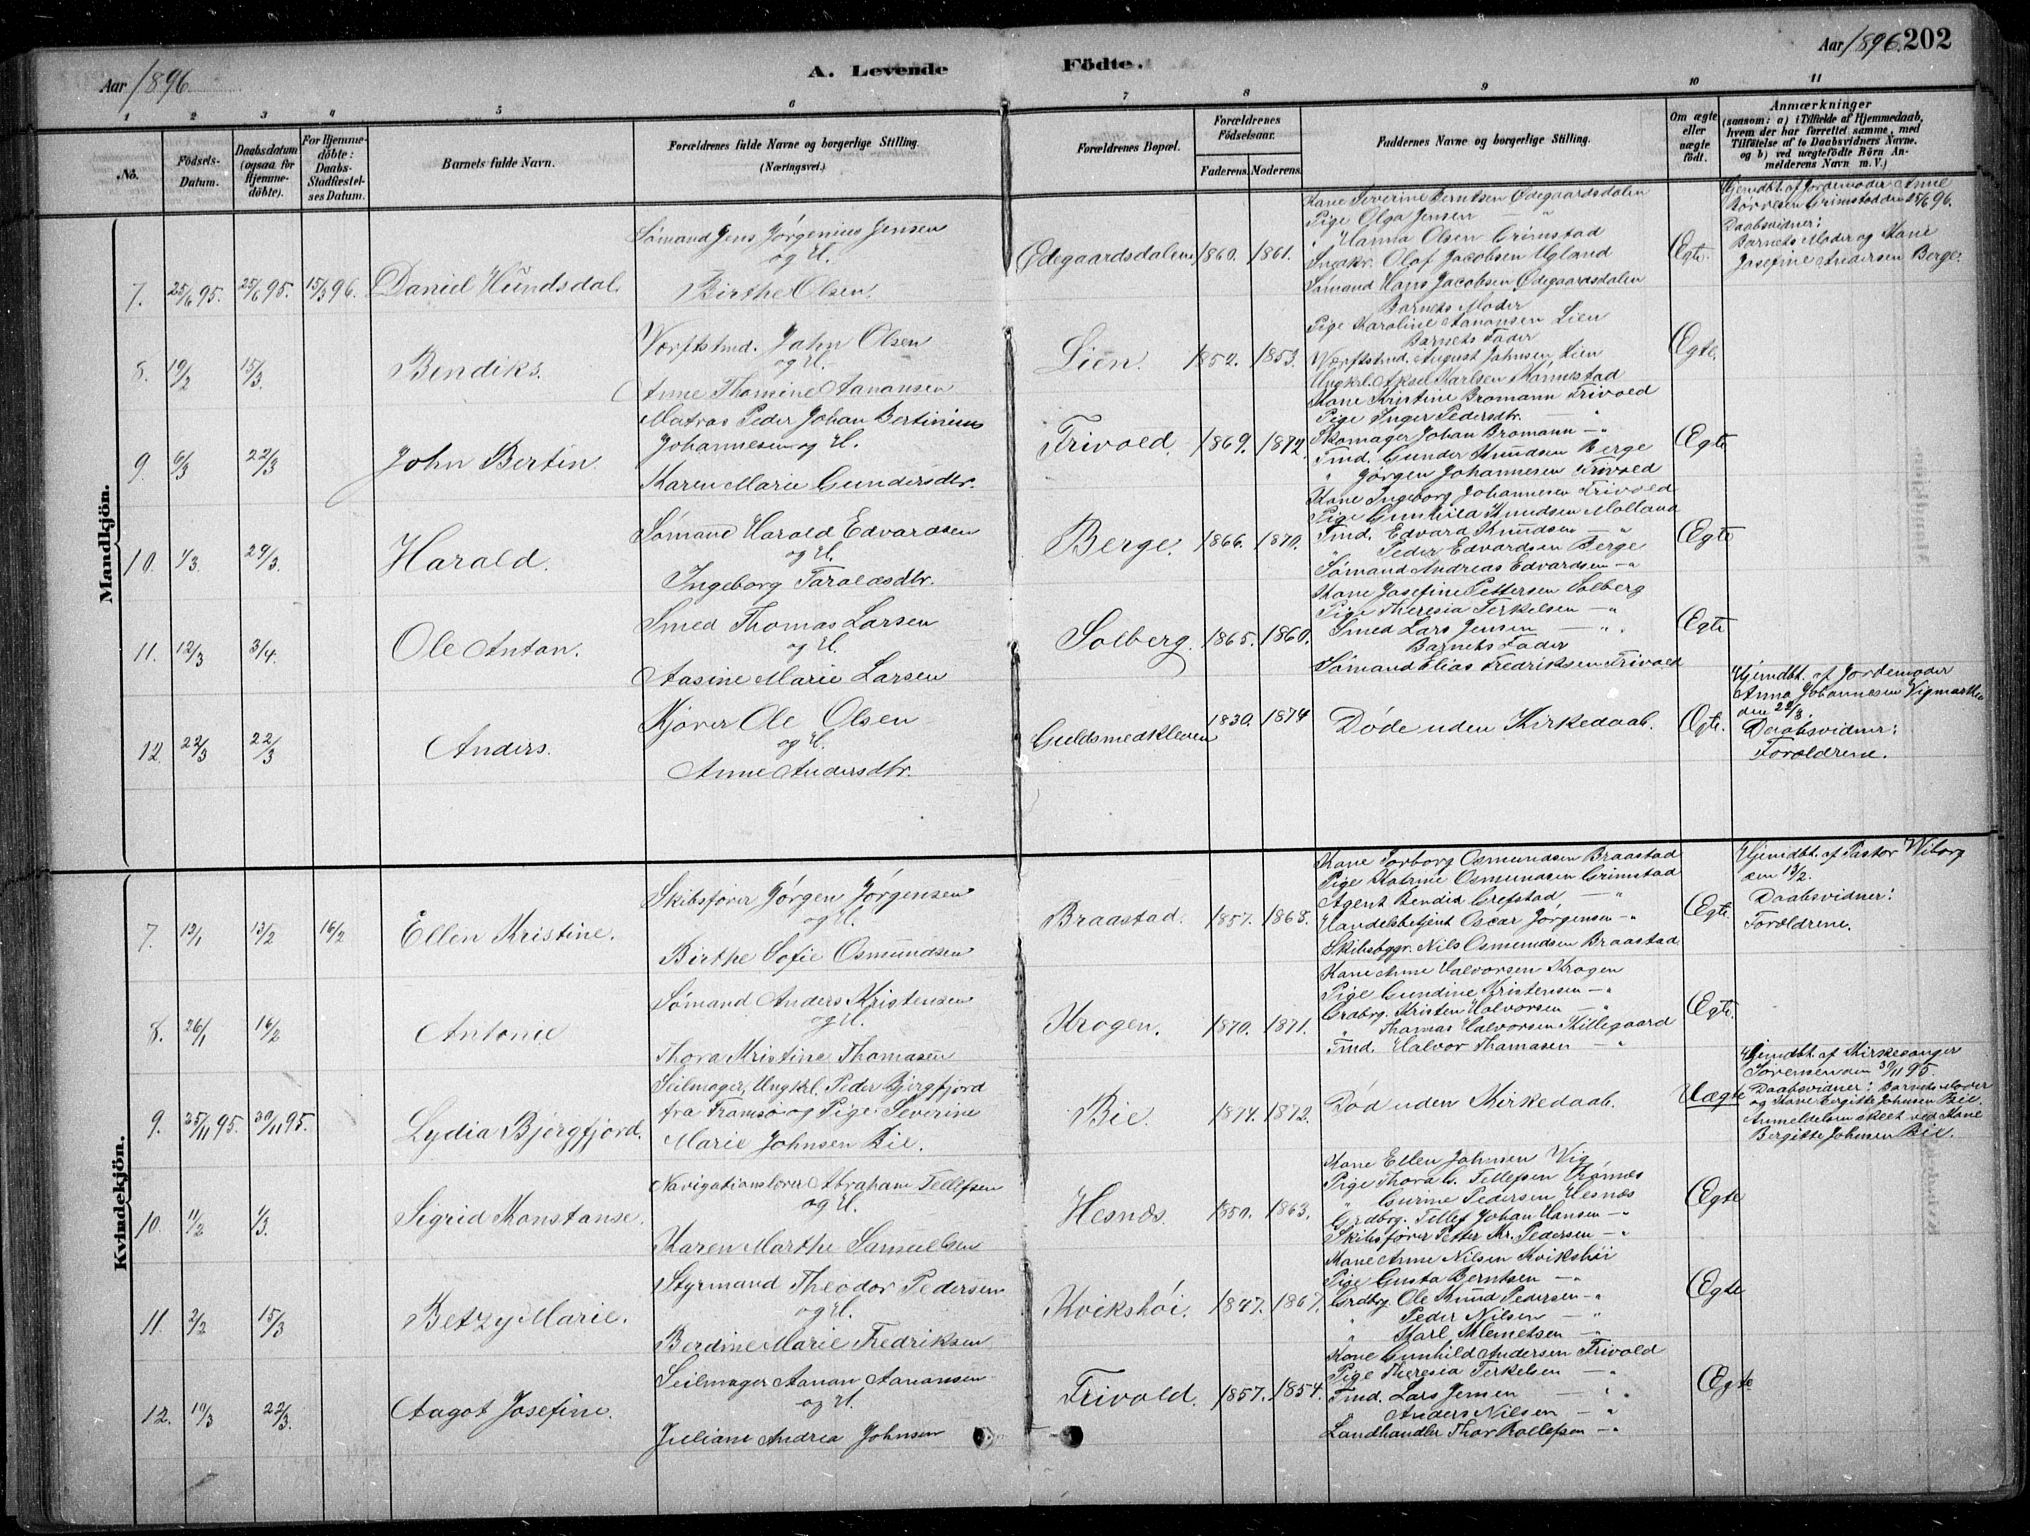 Aar 1896
A. Levende Födte.
Aar 1896. 202
1 2 3 4 5 6 7 8 9 10 11
No.
Födsels-Datum.
Daabsdatum (ogsaa för Hjemmedöbte).
For Hjemmedöbte: Daabs-Stadfæstelses Datum.
Barnets fulde Navn.
Forældrenes fulde Navne og borgerlige Stilling. (Næringsvei.)
Forældrenes Bopæl.
Forældrenes Födselsaar.
Faderens. Moderens.
Faddernes Navne og borgerlige Stilling.
Om ægte eller uægte födt.
Anmærkninger
(saasom: a) i Tilfælde af Hjemmedaab, hvem der har forrettet samme, med Tilföielse af to Daabsvidners Navne, og b) ved uægtefödte Börn Anmelderens Navn m. V.)
Mandkjön.
7. 25/6 95. 25/6 95. 15/3 96. Daniel Hundsdal.
Sømand Jens Jørgenius Jensen
og H.
Birthe Olsen.
Ødegaardsdalen 1860. 1861.
Kone Severine Berntsen Ødegaardsdalen
Pige Olga Jensen — "
" Hanna Olsen Grimstad
Ungkr. Olaf Jacobsen Ugland
Sømand Hans Jacobsen Ødegaardsdalen
Barnets Moder
Ægte.
Hjemdbt. af Jordemoder Anne
Børresen Grimstad den 25/6 96.
Daabsvidner:
Barnets Moder og Kone
Josefine Andersen Berge.
8. 19/2 15/3. Bendiks.
Værftstmd. John Olsen
og H.
Anne Thomine Aanonsen
Lien. 1852. 1853.
Pige Karoline Aanonsen Lien
Barnets Fader
Værftstmd. August Johnsen Lien
Ungkrl. Aksel Karlsen Rønnestad
Ægte.
9. 6/3 22/3 John Bertin
Matros Peder Johan Bertinius
Johannesen og H.
Karen Marie Gundersdtr.
Trivold. 1869. 1872.
Kone Kristine Bromann Trivold
Pige Inger Pedersdtr. — "
Skomager Johan Bromann — "
Tmd. Gunder Knudsen Berge
" Jørgen Johannesen Trivold
Ægte
10. 1/3. 29/3. Harald.
Sømand Harald Edvardsen
og H.
Ingeborg Taraldsdtr.
Berge. 1866. 1870.
Kone Ingeborg Johannesen Trivold
Pige Gunhild Knudsen Molland
Tmd. Edvard Knudsen — "
" Peder Edvardsen Berge
Sømand Andreas Edvardsen — "
Ægte
11. 12/3 3/4. Ole Anton.
Smed Thomas Larsen
og H.
Aasine Marie Larsen
Solberg. 1865. 1860.
Kone Josefine Pettersen Solberg
Pige Theresia Terkelsen — "
Smed Lars Jensen — "
Barnets Fader
Sømand Elias Fredriksen Trivold
Ægte
12. 22/3 22/3 Anders.
Kjører Ole Olsen
og H.
Anne Andersdtr.
Guldsmedkleven 1830. 1874
Døde uden Kirkedaab.
Ægte.
Hjemdbt. af Jordemoder
Anna Johannesen Vigmarken
den 22/3.
Daabsvidner:
Forældrene.
Kvindekjön.
7. 12/1 13/2 16/2 Ellen Kristine.
Skibsfører Jørgen Jørgensen
og H.
Birthe Sofie Osmundsen
Braastad. 1857. 1868.
Kone Torborg Osmundsen Braastad
Pige Katrine Osmundsen Grimstad
Agent Bendix Grefstad, — "
Handelsbetjent Oscar Jørgensen — "
Skibsbygr. Nils Osmundsen Braastad
Ægte
Hjemdbt. af Pastor Wiborg
den 13/2.
Daabsvidner:
Forældrene.
8. 26/1 16/2 Antonie
Sømand Anders Kristensen
og H.
Thora Kristine Thomasen
Krogen. 1870. 1871.
Kone Anne Halvorsen Krogen
Pige Gundine Kristensen — "
Grdbrg. Kristen Halvorsen — "
" Thomas Halvorsen Skillegaard
Tmd. Halvor Thomasen — "
Ægte.
9. 25/11 95. 30/11 95. Lydia Bjergfjord.
Seilmager, Ungkl. Peder Bjergfjord
fra Tromsø og Pige Severine
Marie Johnsen Bie.
Bie. 1874. 1872.
Død uden Kirkedaab.
Uægte
Hjemdbt. af Kirkesanger
Sørensen den 30/11 95.
Daabsvidner: Barnets Moder
og Kone Bergitte Johnsen Bie.
Anmeldelsen skeet ved Kone
Bergitte Johnsen Bie.
10. 11/2 1/3. Sigrid Konstanse.
Navigationslærer Abraham Tellefsen
og H.
Karen Marthe Samuelsen
Hesnæs. 1850. 1863.
Kone Ellen Johnsen Vig
Pige Thora G. Tellefsen Tromøs
" Gurine Pedersen Hesnæs
Grdbrg. Tellef Johan Hansen — "
Skibsfører Petter Kr. Pedersen — "
Ægte
11. 2/2 15/3 Betzy Marie.
Styrmand Theodor Pedersen
og H.
Berdine Marie Fredriksen
Kvikshøi. 1847. 1867.
Kone Anne Nilsen Kvikshøi
Pige Gusta Berntsen — "
Grdbrg. Ole Knud Pedersen — "
" Peder Nilsen — "
" Karl Klemetsen — "
Ægte
12. 10/3 22/3. Aagot Josefine.
Seilmager Aanon Aanonsen
og H.
Juliane Andrea Johnsen
Trivold. 1857. 1854.
Kone Gunhild Andersen Trivold
Pige Theresia Terkelsen — "
Tmd. Lars Jensen — "
" Anders Nilsen — "
Landhandler Thor Rollefsen — "
Ægte